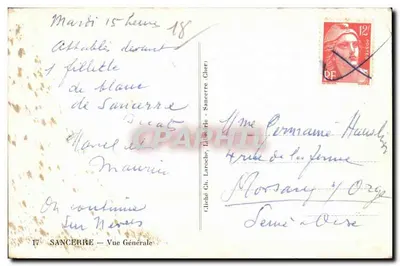 Mardi 15 heures
18
Attablés devant
1 fillette
de blanc
de Sancerre
Marcel et
On continue
sur Nevers
17 SANCERRE — Vue Générale
Cliché Ch. Laroche, Librairie - Sancerre (Cher)
12F
RF
Mme Germaine
4 rue de la ferme
Morsang s/ Orge
Seine-et-Oise
CPAPHIL